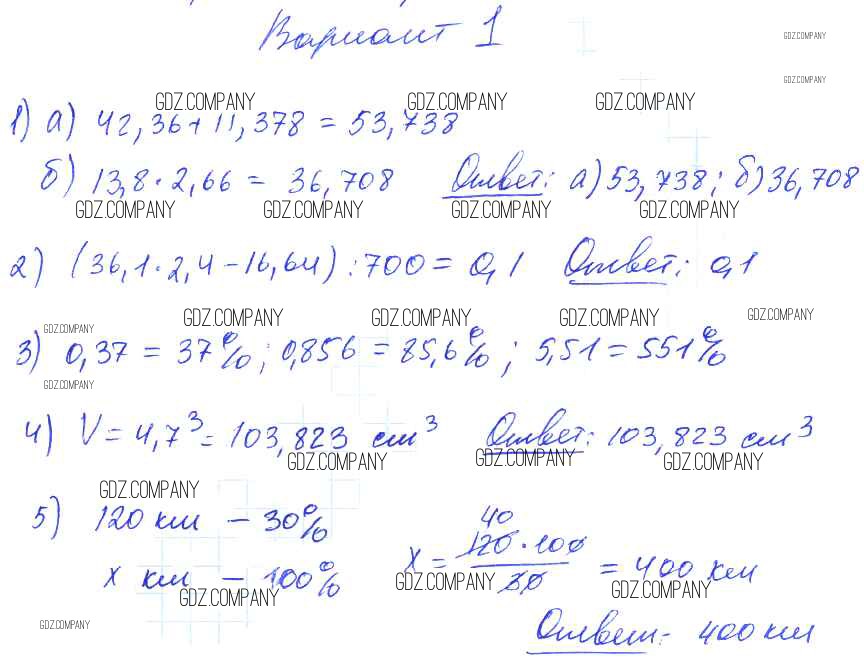 Вариант 1
GDZ.COMPANY
GDZ.COMPANY
GDZ.COMPANY GDZ.COMPANY GDZ.COMPANY
1) а) 42,36 + 11,378 = 53,738
б) 13,8 · 2,66 = 36,708 Ответ: а) 53,738; б) 36,708
GDZ.COMPANY GDZ.COMPANY GDZ.COMPANY GDZ.COMPANY
2) (36,1 · 2,4 - 16,64) : 700 = 0,1 Ответ: 0,1
GDZ.COMPANY GDZ.COMPANY GDZ.COMPANY GDZ.COMPANY GDZ.COMPANY
3) 0,37 = 37%; 0,856 = 85,6%; 5,51 = 551%
GDZ.COMPANY
4) V = 4,7³ = 103,823 см³ Ответ: 103,823 см³
GDZ.COMPANY GDZ.COMPANY GDZ.COMPANY
GDZ.COMPANY
5) 120 км - 30%
x км - 100%
40
x = 120 · 100 / 30 = 400 км
GDZ.COMPANY GDZ.COMPANY GDZ.COMPANY
GDZ.COMPANY
Ответ: 400 км